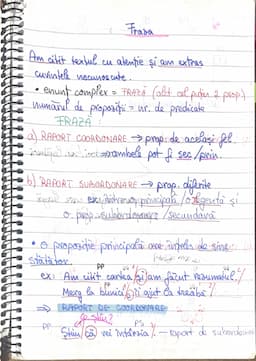 Fraza
Am citit textul cu atenție și am extras
cuvintele necunoscute.
• enunț complex = FRAZĂ (alc. cel puțin 2 prop.)
numărul de propoziții = nr. de predicate
FRAZĂ
a) RAPORT COORDONARE → prop. de același fel
ambele pot f sec/prin.
b) RAPORT SUBORDONARE → prop. diferite
ex: între o principală /
o prop. subordonată / secundară
• O propoziție principală are înțeles de sine
stătător.
ex: Am citit cartea și am făcut rezumatul.
Merg la bunica și ajut la treabă.
⇒ RAPORT DE COORDONARE
ce știu?
PP PS
Știu că vei întârzia. - raport de subordonare